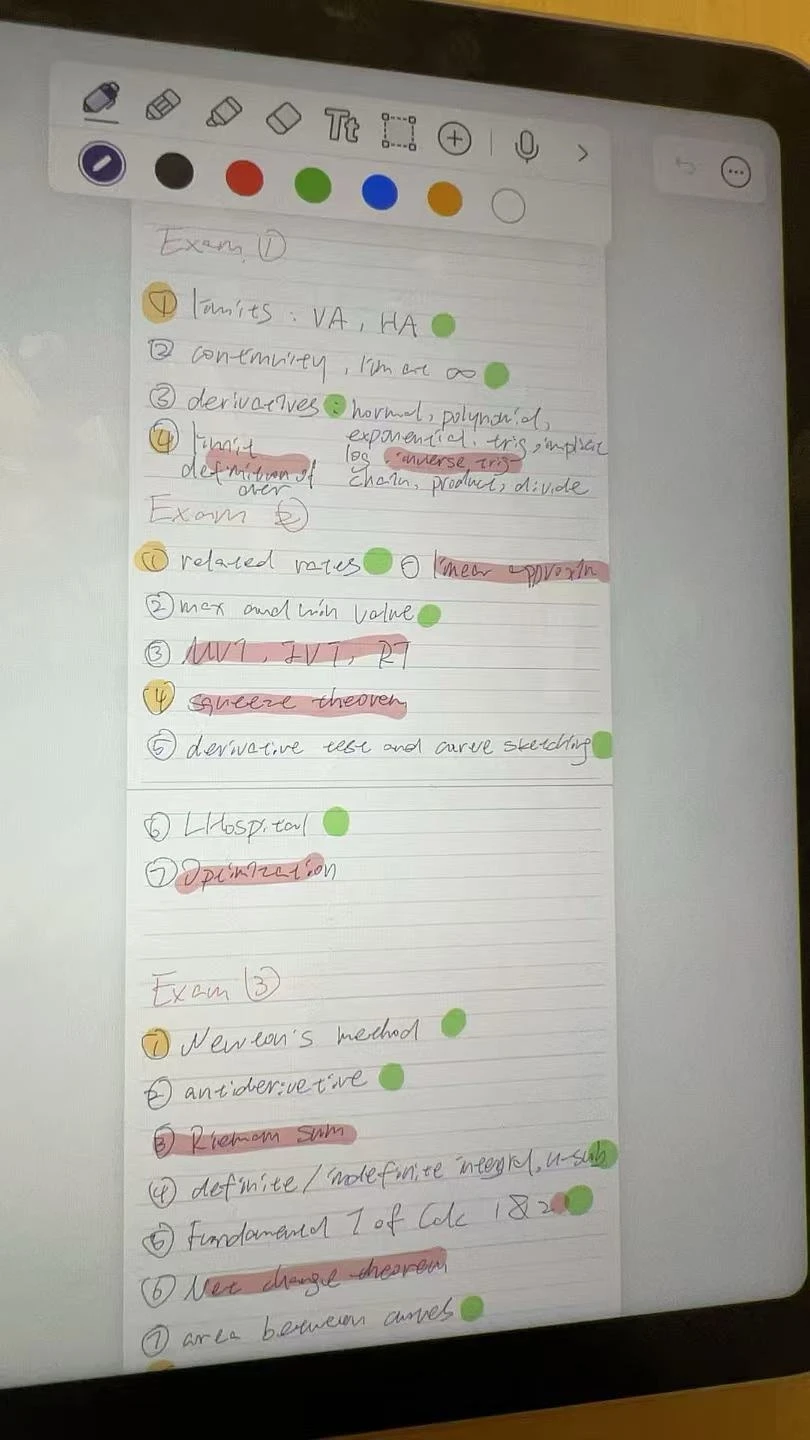 Tt
Exam ①
① limits : VA, HA
② continuity, lim at ∞
③ derivatives : normal, polynomial,
exponential, trig, implicit
log, inverse trig
chain, product, divide
④ limit
definition of
over
Exam ②
① related rates ⓪ linear approxin
② max and min value
③ MVT, IVT, RT
④ squeeze theorem
⑤ derivative test and curve sketching
⑥ LHospital
⑦ Opimization
Exam ③
① Newton's method
② antiderivetive
③ Riemam sum
④ definite/indefinite integral, u-sub
⑤ Fundamental T of Calc 1&2
⑥ Net change theorem
⑦ area between curves